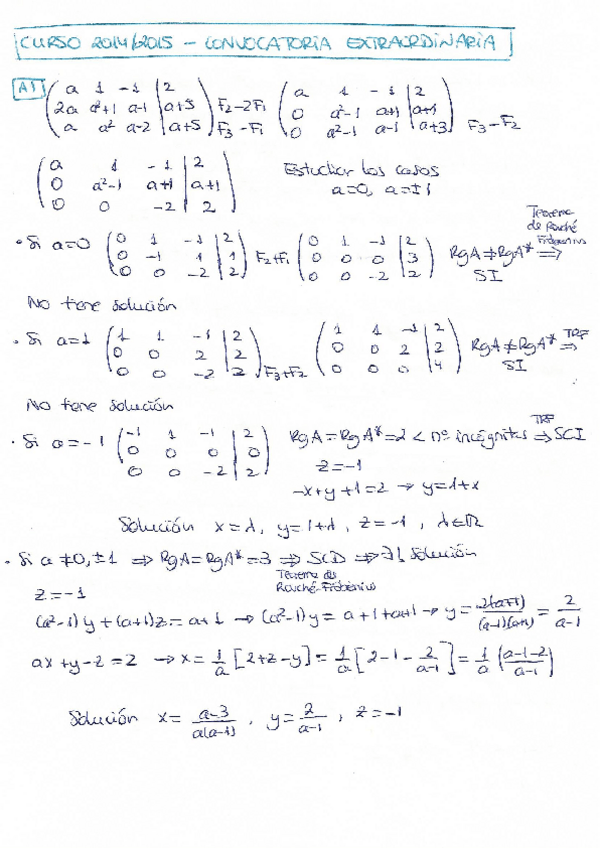 CURSO 2014/2015 - CONVOCATORIA EXTRAORDINARIA
A1
a 1 -1 | 2
2a a²+1 a-1 | a+5 F2-2F1
a a² a-2 | a+5 F3-F1
a 1 -1 | 2
0 a²-1 a+1 | a+1
0 a²-1 a-1 | a+3 F3-F2
a 1 -1 | 2
0 a²-1 a+1 | a+1
0 0 -2 | 2
Estudiar los casos
a=0, a=±1
• Si a=0
0 1 -1 | 2
0 -1 1 | 1
0 0 -2 | 2
F2+F1
0 1 -1 | 2
0 0 0 | 3
0 0 -2 | 2
RgA≠RgA* ⇒
Teorema de Rouché Frobenius
SI
No tiene solución
• Si a=1
1 1 -1 | 2
0 0 2 | 2
0 0 -2 | 2 F3+F2
1 1 -1 | 2
0 0 2 | 2
0 0 0 | 4
RgA≠RgA* ⇒ TRF
SI
No tiene solución
• Si a=-1
-1 1 -1 | 2
0 0 0 | 0
0 0 -2 | 2
RgA=RgA*=2 < nº incógnitas ⇒ TRF SCI
z=-1
-x+y+1=2 → y=1+x
Solución x=λ, y=1+λ, z=-1, λ∈ℝ
• Si a≠0,±1 ⇒ RgA=RgA*=3 ⇒ SCD ⇒ ∃1 solución
Teorema de Rouché-Frobenius
z=-1
(a²-1)y+(a+1)z=a+1 → (a²-1)y=a+1+a+1 → y=2(a+1)/(a-1)(a+1)=2/a-1
ax+y-z=2 → x=1/a[2+z-y]=1/a[2-1-2/a-1]=1/a(a-1-2/a-1)
Solución x=a-3/a(a-1), y=2/a-1, z=-1